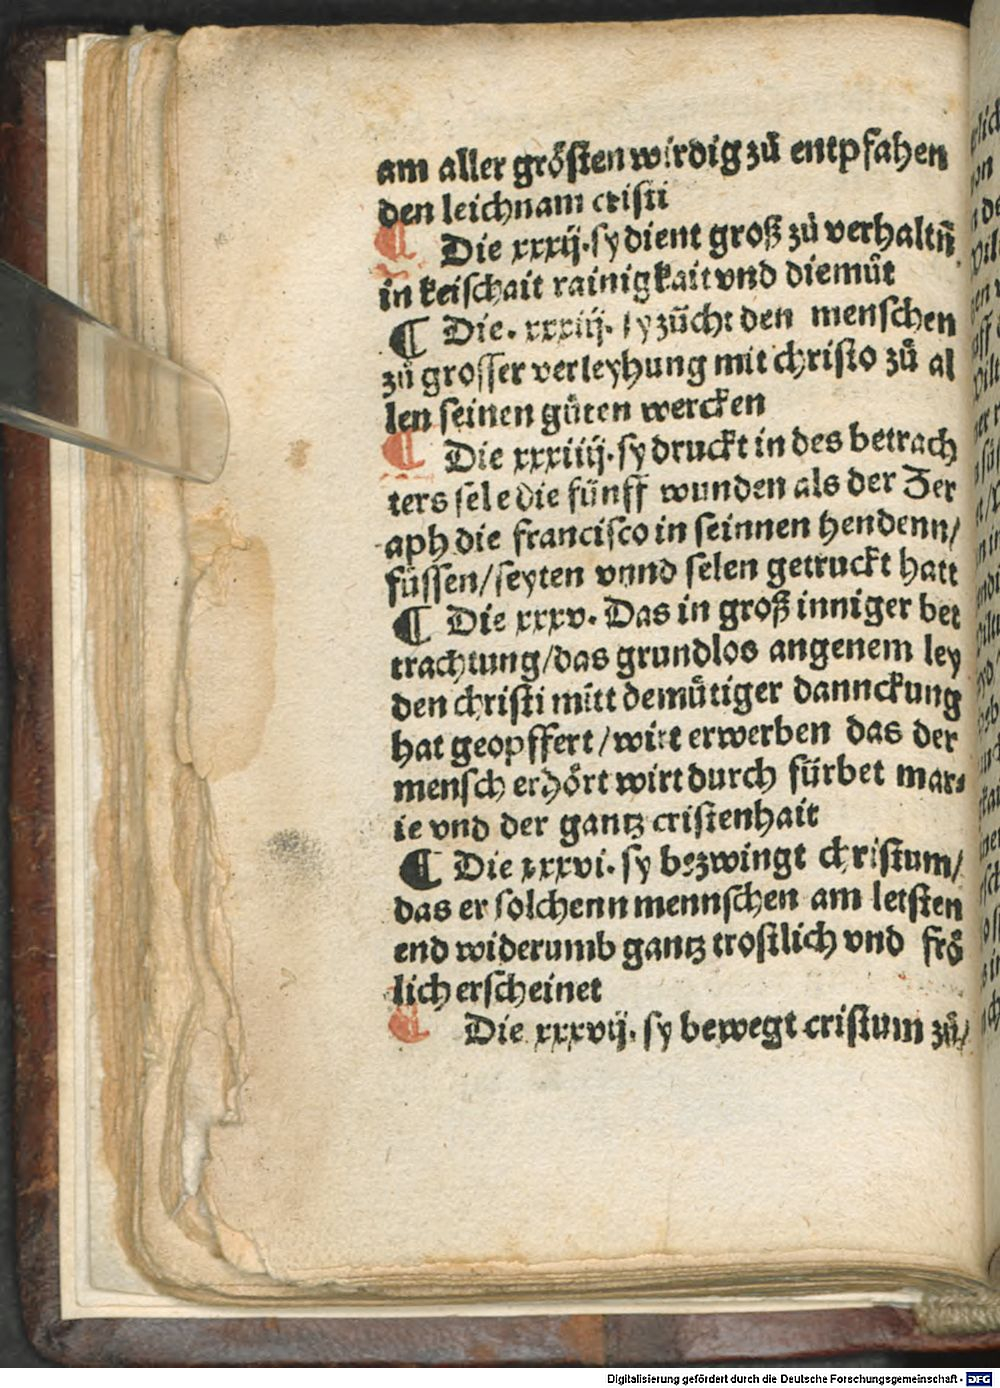 am aller grösten wirdig zů entpfahen
den leichnam cristi
¶ Die xxxij. sy dient groß zů verhaltñ
in keischait rainigkait vnd diemůt
¶ Die. xxxiij. sy zücht den menschen
zů grosser verleyhung mit christo zů al
len seinen gůten wercken
¶ Die xxxiiij. sy druckt in des betrach
ters sele die fünff wunden als der Zer
aph die francisco in seinnen hendenn/
füssen/seyten vnnd selen getruckt hatt
¶ Die xxxv. Das in groß inniger bet
trachtung/das grundlos angenem ley
den christi mitt demůtiger dannckung
hat geopffert/wirt erwerben das der
mensch erhört wirt durch fürbet mar⸗
ie vnd der gantz cristenhait
¶ Die xxxvi. sy bezwingt christum/
das er solchenn mennschen am letsten
end widerumb gantz trostlich vnd frö
lich erscheinet
¶ Die xxxvij. sy bewegt cristum zů/
Digitalisierung gefördert durch die Deutsche Forschungsgemeinschaft - DFG